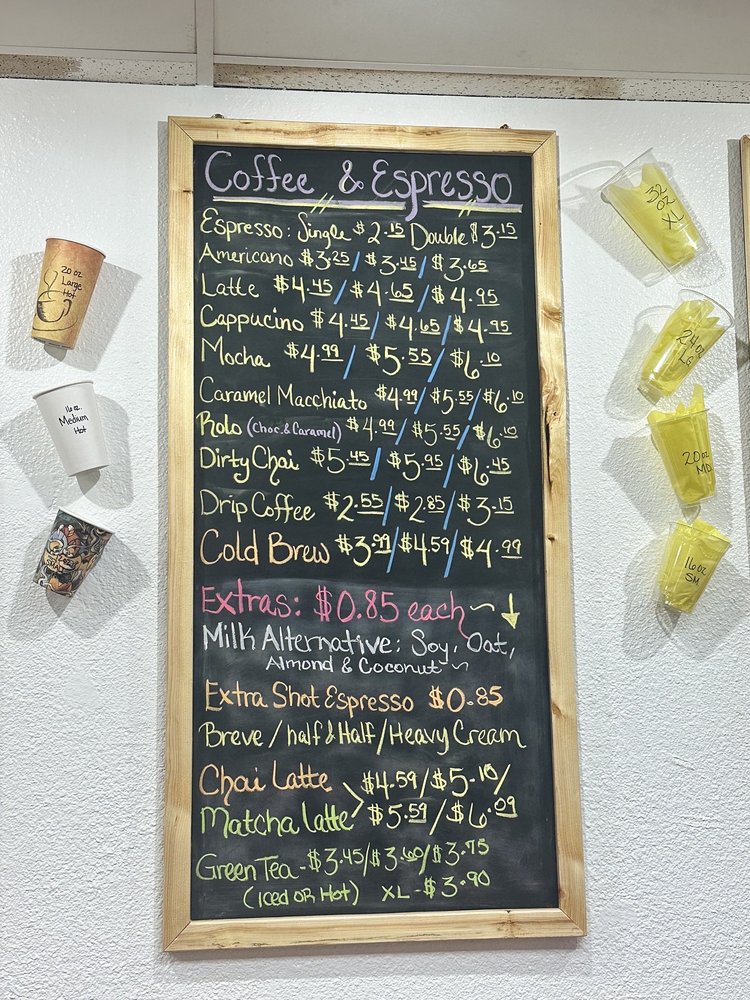 Coffee & Espresso
Espresso: Single $2.15 Double $3.15
Americano $3.25/$3.45/$3.65
Latte $4.45/$4.65/$4.95
Cappucino $4.45/$4.65/$4.95
Mocha $4.99/$5.55/$6.10
Caramel Macchiato $4.99/$5.55/$6.10
Rolo (Choc.&Caramel) $4.99/$5.55/$6.10
Dirty Chai $5.45/$5.95/$6.45
Drip Coffee $2.55/$2.85/$3.15
Cold Brew $3.99/$4.59/$4.99
Extras: $0.85 each~ ↓
Milk Alternative: Soy, Oat,
Almond & Coconut~
Extra Shot Espresso $0.85
Breve/half & Half/Heavy Cream
Chai Latte $4.59/$5.10/
Matcha latte $5.59/$6.09
Green Tea-$3.45/$3.60/$3.75
(Iced OR Hot) XL-$3.90
20 oz
Large
Hot
16 oz.
Medium
Hot
32
OZ
XL
24oz
LG
20oz
MD
16oz
SM